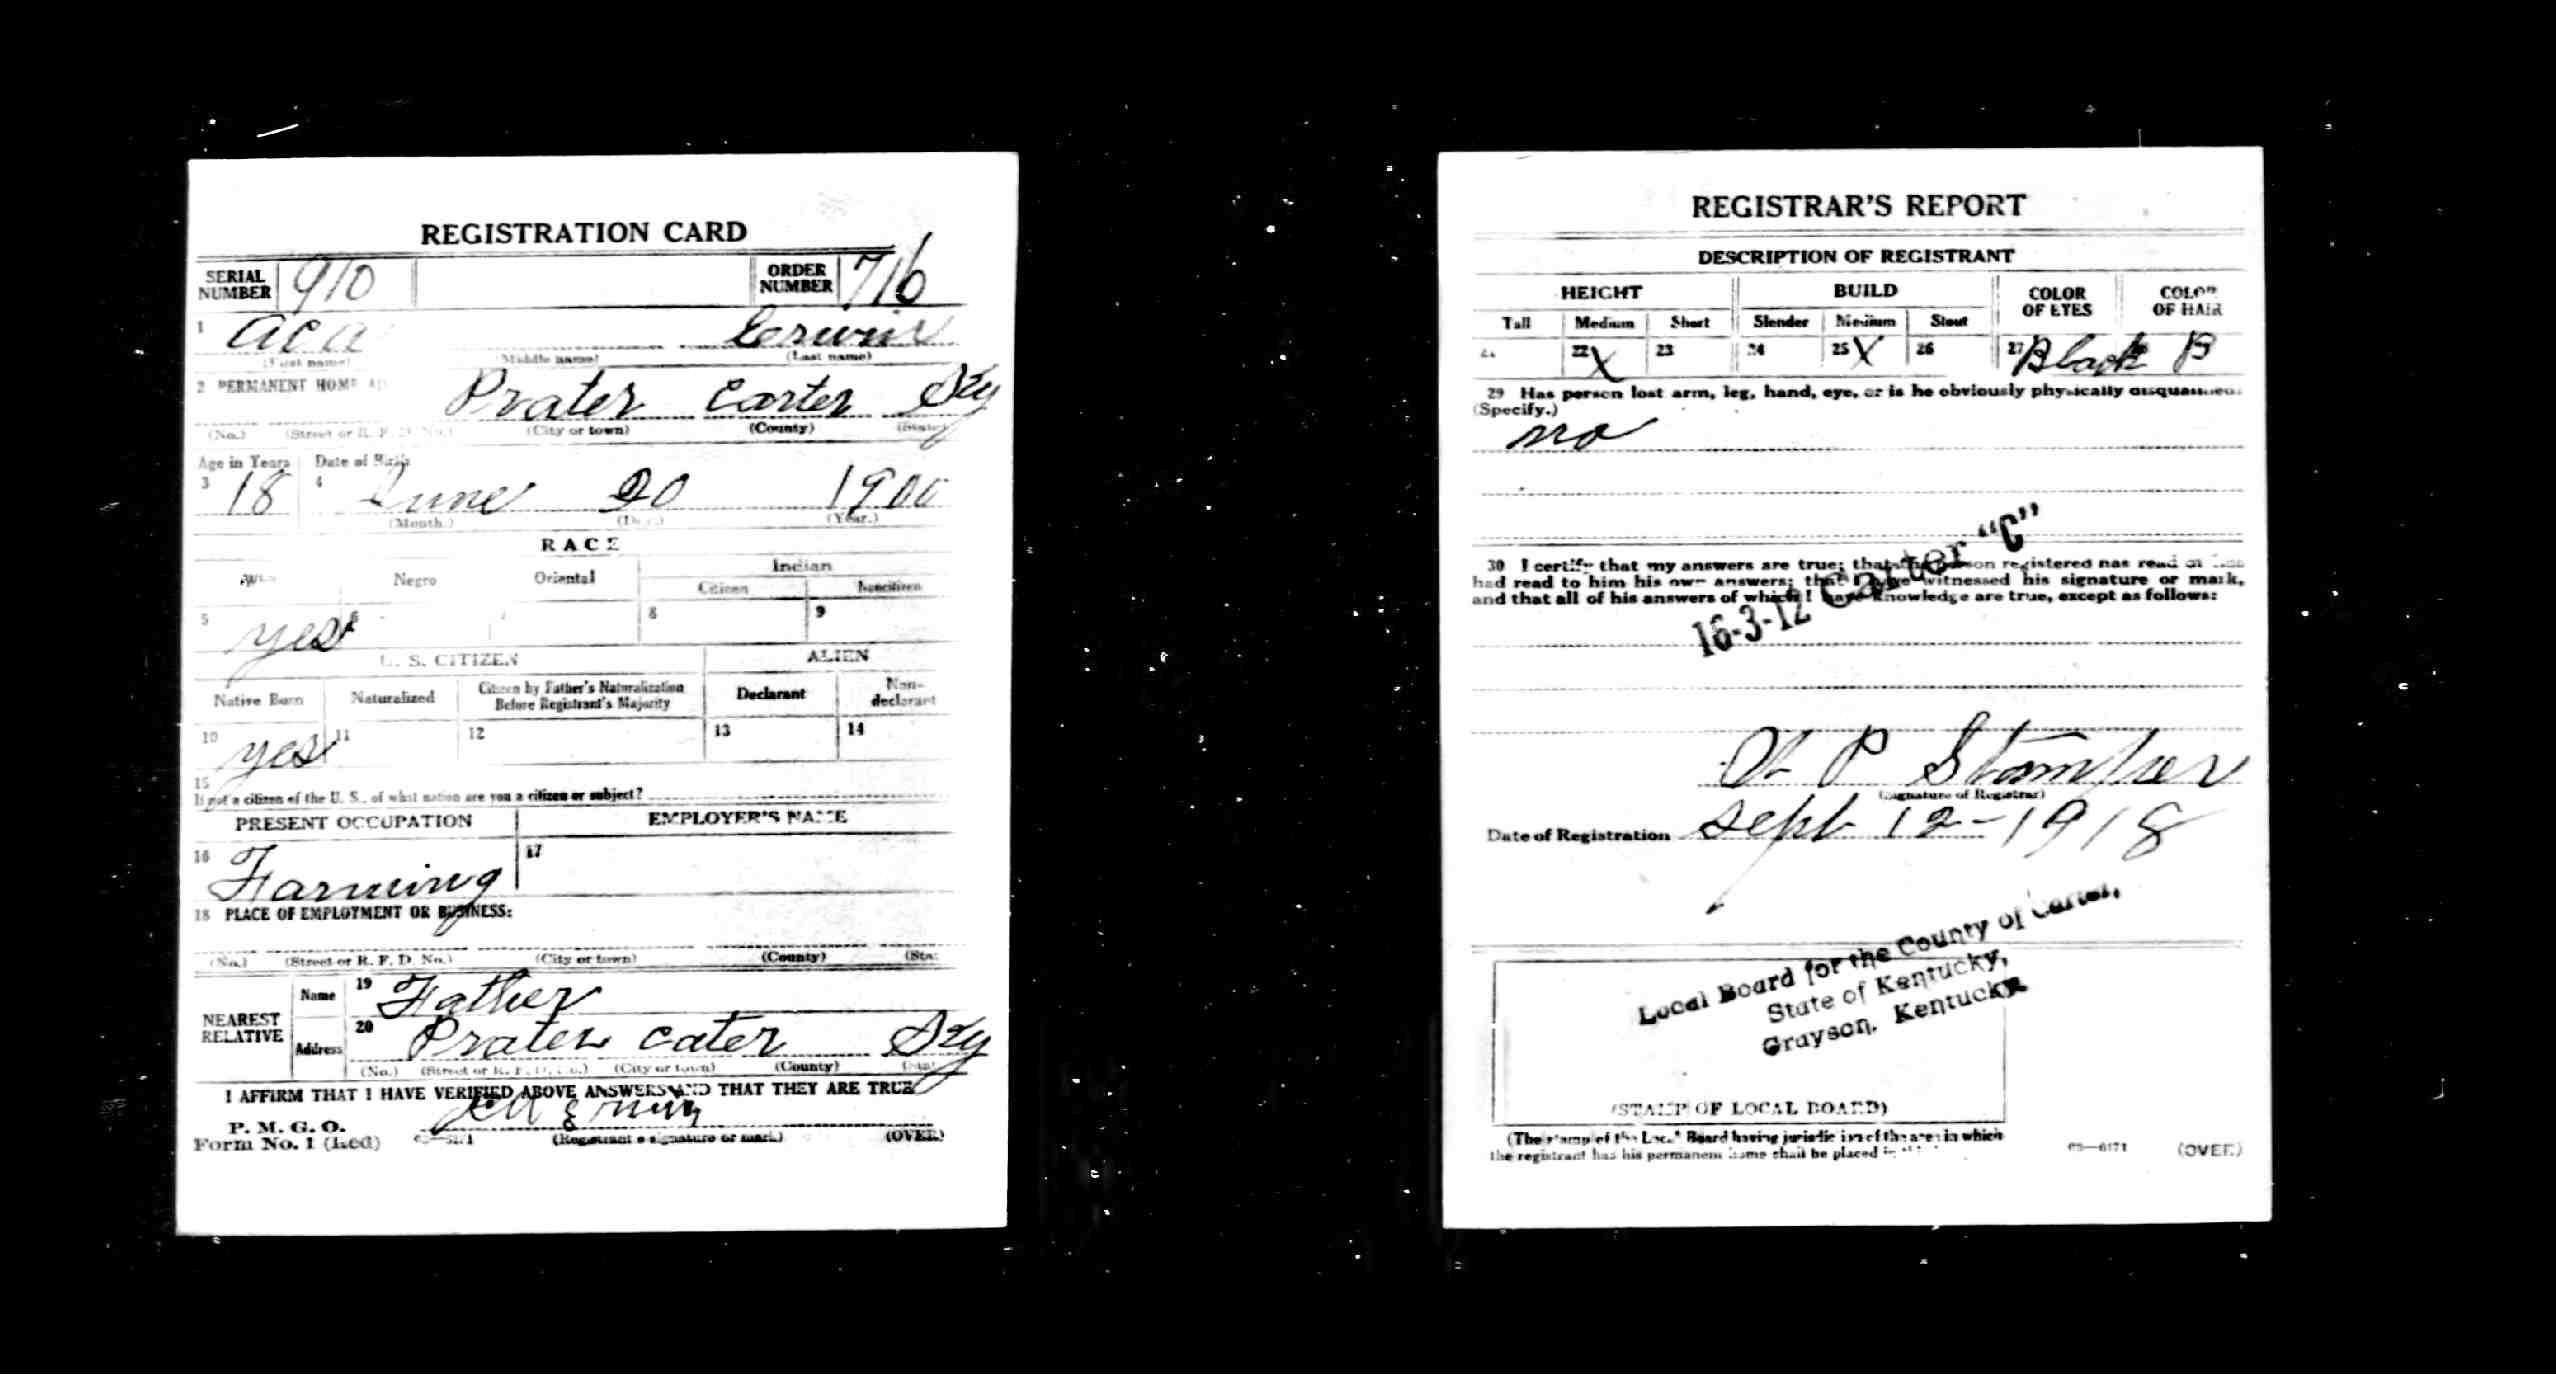 REGISTRATION CARD
SERIAL NUMBER 910 ORDER NUMBER 716
1 Aca Erwin
(First name) (Middle name) (Last name)
2 PERMANENT HOME Prater Carter Ky
(No.) (Street or R. F. D. No.) (City or town) (County) (State)
Age in Years Date of Birth
3 18 4 June 20 1900
(Month.) (Day.) (Year.)
RACE
Negro Oriental Indian
Citizen Noncitizen
5 yes 6 7 8 9
U. S. CITIZEN ALIEN
Native Born Naturalized Citizen by Father's Naturalization Before Registrant's Majority Declarant Non-declarant
10 yes 11 12 13 14
15
If not a citizen of the U. S., of what nation are you a citizen or subject?
PRESENT OCCUPATION EMPLOYER'S NAME
16 Farming 17
18 PLACE OF EMPLOYMENT OR BUSINESS:
(No.) (Street or R. F. D. No.) (City or town) (County)
NEAREST RELATIVE Name 19 Father
Address 20 Prater Cater Ky
(No.) (Street or R. F. D. No.) (City or town) (County)
I AFFIRM THAT I HAVE VERIFIED ABOVE ANSWERS AND THAT THEY ARE TRUE
P. M. G. O.
Form No. 1 (Red) (Registrant's signature or mark) (OVER)
REGISTRAR'S REPORT
DESCRIPTION OF REGISTRANT
HEIGHT BUILD COLOR OF EYES COLOR OF HAIR
Tall Medium Short Slender Medium Stout
21 22 X 23 24 25 X 26 27 Black B
29 Has person lost arm, leg, hand, eye, or is he obviously physically disqualified?
(Specify.)
no
30 I certify that my answers are true; that the person registered has read or has
had read to him his own answers; that I have witnessed his signature or mark,
and that all of his answers of which I have knowledge are true, except as follows:
16-3-12 Carter "C"
P Stamper
(Signature of Registrar)
Date of Registration Sept 12-1918
Local Board for the County of Carter,
State of Kentucky,
Grayson, Kentucky
(STAMP OF LOCAL BOARD)
(The stamp of the Local Board having jurisdiction of the area in which
the registrant has his permanent home shall be placed in
03—6171 (OVER)